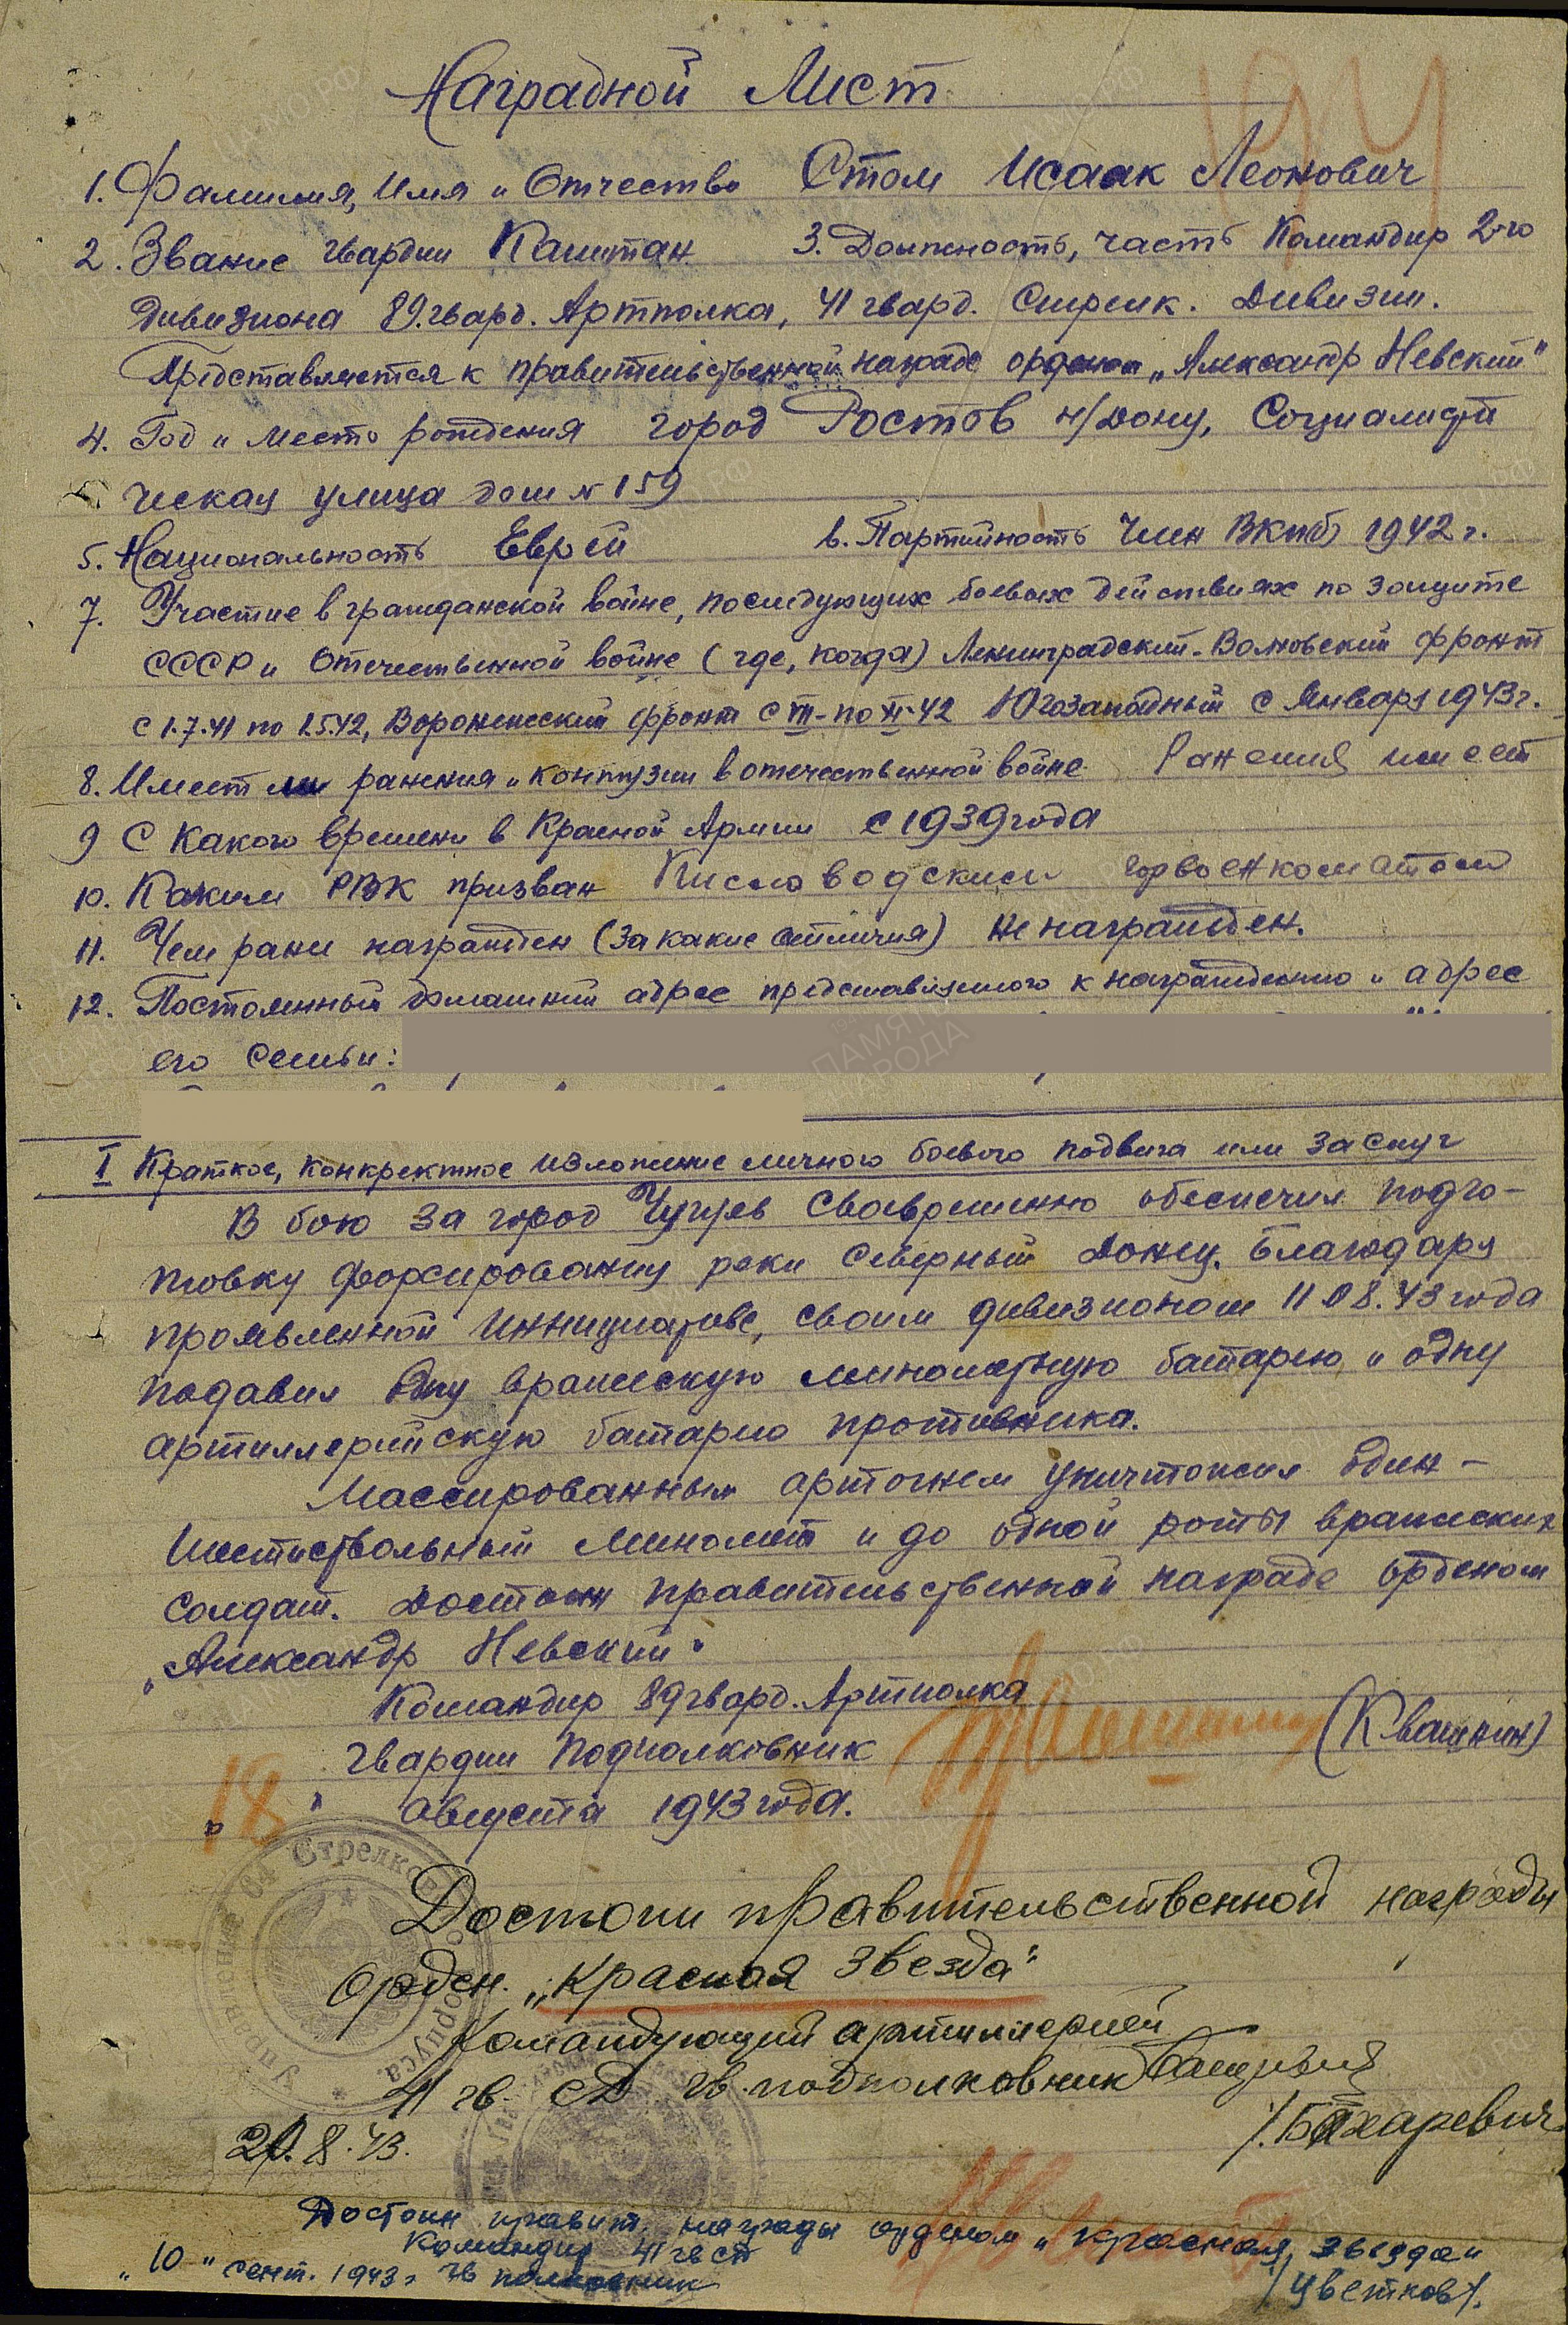 Наградной Лист
1. Фамилия, Имя и Отчество Стом Исаак Леонович
2. Звание гвардии Капитан 3. Должность, часть Командир 2-го
дивизиона 89 гвард. Артполка, 41 гвард. Стрелк. Дивизии.
Представляется к правительственной награде орденом „Александр Невский"
4. Год и место рождения город Ростов н/Дону, Социалисти
ческая улица дом № 159
5. Национальность Еврей в. Партийность Член ВКПб 1942 г.
7. Участие в гражданской войне, последующих боевых действиях по защите
СССР и отечественной войне (где, когда) Ленинградский-Волховский фронт
с 1.7.41 по 1.5.42, Воронежский фронт с VII - по XI-42 Югозападный с Января 1943 г.
8. Имеет ли ранения и контузии в отечественной войне Ранения имеет
9 С какого времени в Красной Армии с 1939 года
10. Каким РВК призван Кисловодским горвоенкоматом
11. Чем ранее награжден (За какие отличия) не награжден.
12. Постоянный домашний адрес представляемого к награждению и адрес
его семьи:
I Краткое, конкректное изложение личного боевого подвига или заслуг
В бою за город Чугуев Своевременно обеспечил подго-
товку форсированию реки Северный Донец. Благодаря
проявленной Иннициативе, своим дивизионом 11.08.43 года
подавил одну вражескую минометную батарею и одну
артиллерийскую батарею противника.
Массированным артогнем уничтожил один -
шестиствольный миномет и до одной роты вражеских
солдат. Достоин правительственной награде орденом
„Александр Невский"
Командир 89 гвард. Артполка
гвардии Подполковник (Квашнин)
„18" августа 1943 года.
Управление 64 Стрелкового Корпуса
Достоин правительственной награды
Орден. „Красная Звезда"
Командующий артиллерией
41 гв. СД гв. подполковник
/.Бахаревич
20.8.43.
Достоин правит. награды орденом „Красная звезда"
Командир 41 гв сд
„10" сент. 1943 г гв полковник /Цветков/.